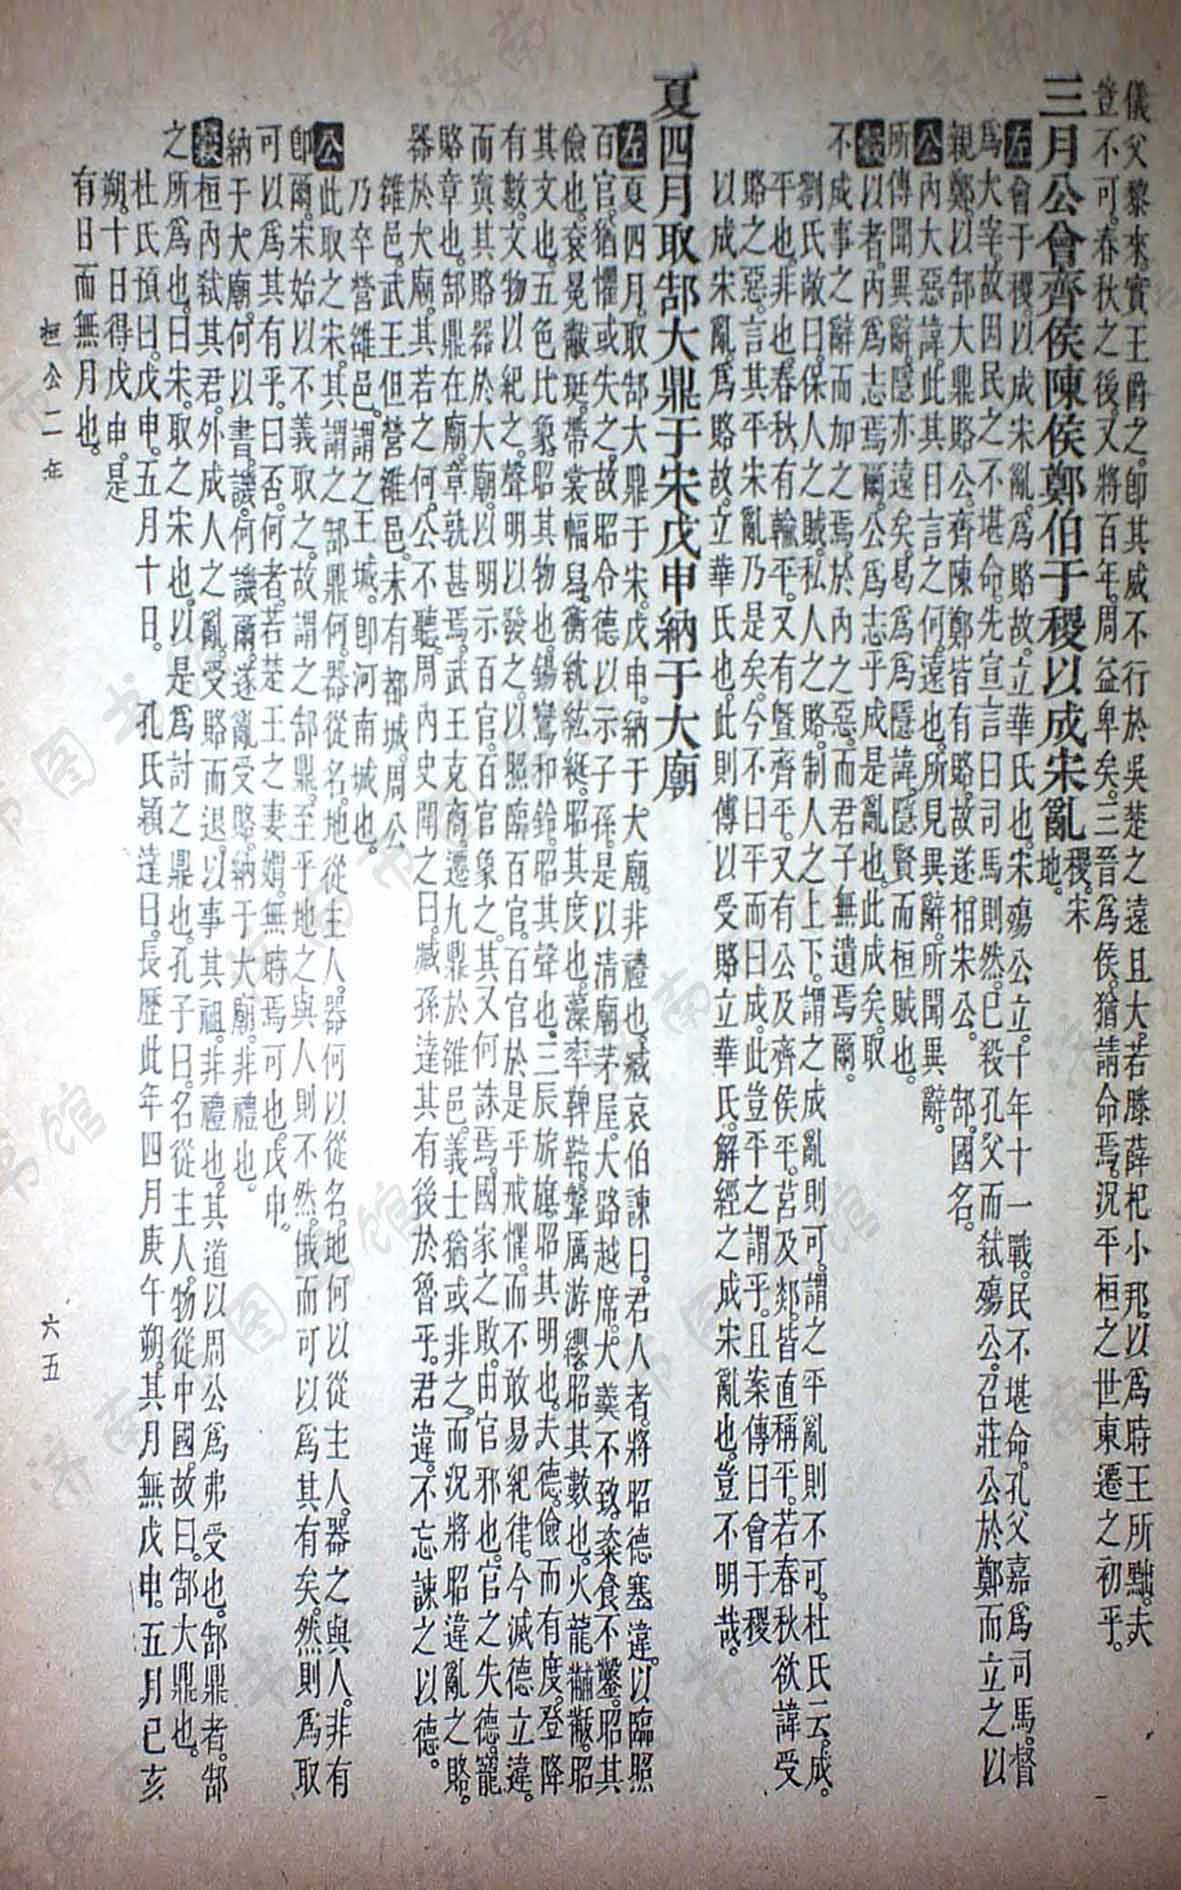 儀父黎來。實王爵之。卽其威不行於吳楚之遠且大。若滕薛杞小邦。以爲時王所黜。夫
豈不可。春秋之後。又將百年。周益卑矣。三晉爲侯。猶請命焉。況平桓之世東遷之初乎。
三月公會齊侯陳侯鄭伯于稷以成宋亂 稷。宋地。
左會于稷。以成宋亂。爲賂故。立華氏也。宋殤公立。十年十一戰。民不堪命。孔父嘉爲司馬。督
爲大宰。故因民之不堪命。先宣言曰。司馬則然。已殺孔父而弒殤公。召莊公於鄭而立之。以
親鄭。以郜大鼎賂公。齊陳鄭皆有賂。故遂相宋公。 郜。國名。
公內大惡諱。此其目言之何。遠也。所見異辭。所聞異辭。
所傳聞異辭。隱亦遠矣。曷爲爲隱諱。隱賢而桓賊也。
穀以者。內爲志焉爾。公爲志乎成是亂也。此成矣。取
不成事之辭而加之焉。於內之惡。而君子無遺焉爾。
劉氏敞曰。保人之賊。私人之賂。制人之上下。謂之成亂則可。謂之平亂則不可。杜氏云。成。
平也。非也。春秋有輸平。又有曁齊平。又有公及齊侯平。莒及郯。皆直稱平。若春秋欲諱受
賂之惡。言其平宋亂乃是矣。今不曰平而曰成。此豈平之謂乎。且案傳曰會于稷
以成宋亂。爲賂故。立華氏也。此則傳以受賂立華氏。解經之成宋亂也。豈不明哉。
夏四月取郜大鼎于宋戊申納于大廟
左夏四月。取郜大鼎于宋。戊申。納于大廟。非禮也。臧哀伯諫曰。君人者。將昭德塞違。以臨照
百官。猶懼或失之。故昭令德以示子孫。是以淸廟茅屋。大路越席。大羹不致。粢食不鑿。昭其
儉也。袞冕黻珽。帶裳幅舄。衡紞紘綖。昭其度也。藻率鞞鞛。鞶厲游纓。昭其數也。火龍黼黻。昭
其文也。五色比象。昭其物也。鍚鸞和鈴。昭其聲也。三辰旂旗。昭其明也。夫德。儉而有度。登降
有數。文物以紀之。聲明以發之。以照臨百官。百官於是乎戒懼。而不敢易紀律。今滅德立違。
而寘其賂器於大廟。以明示百官。百官象之。其又何誅焉。國家之敗。由官邪也。官之失德。寵
賂章也。郜鼎在廟。章孰甚焉。武王克商。遷九鼎於雒邑。義士猶或非之。而況將昭違亂之賂。
器於大廟。其若之何。公不聽。周內史聞之曰。臧孫達其有後於魯乎。君違。不忘諫之以德。
雒邑。武王但營雒邑。未有都城。周公
乃卒營雒邑。謂之王城。卽河南城也。
公此取之宋。其謂之郜鼎何。器從名。地從主人。器何以從名。地何以從主人。器之與人。非有
卽爾。宋始以不義取之。故謂之郜鼎。至乎地之與人則不然。俄而可以爲其有矣。然則爲取
可以爲其有乎。曰否。何者。若楚王之妻媦。無時焉可也。戊申。
納于大廟。何以書。譏。何譏爾。遂亂受賂。納于大廟。非禮也。
穀桓內弒其君。外成人之亂。受賂而退。以事其祖。非禮也。其道以周公爲弗受也。郜鼎者。郜
之所爲也。曰宋。取之宋也。以是爲討之鼎也。孔子曰。名從主人。物從中國。故曰。郜大鼎也。
杜氏預曰。戊申。五月十日。 孔氏穎達曰。長歷此年四月庚午朔。其月無戊申。五月己亥
朔。十日得戊申。是
有日而無月也。
桓公二年
六五